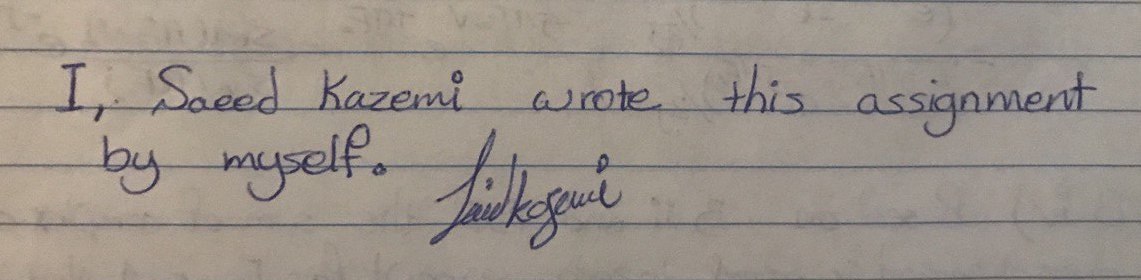 I, Saeed Kazemi wrote this assignment
by myself.
Saidkazemi